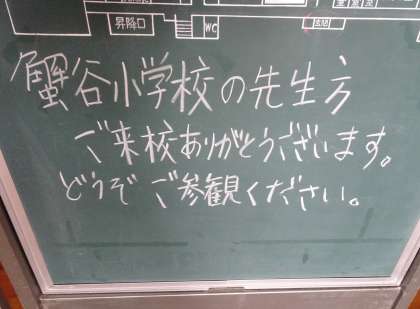 昇降口
WC
玄関
蟹谷小学校の先生方
ご来校ありがとうございます。
どうぞご参観ください。